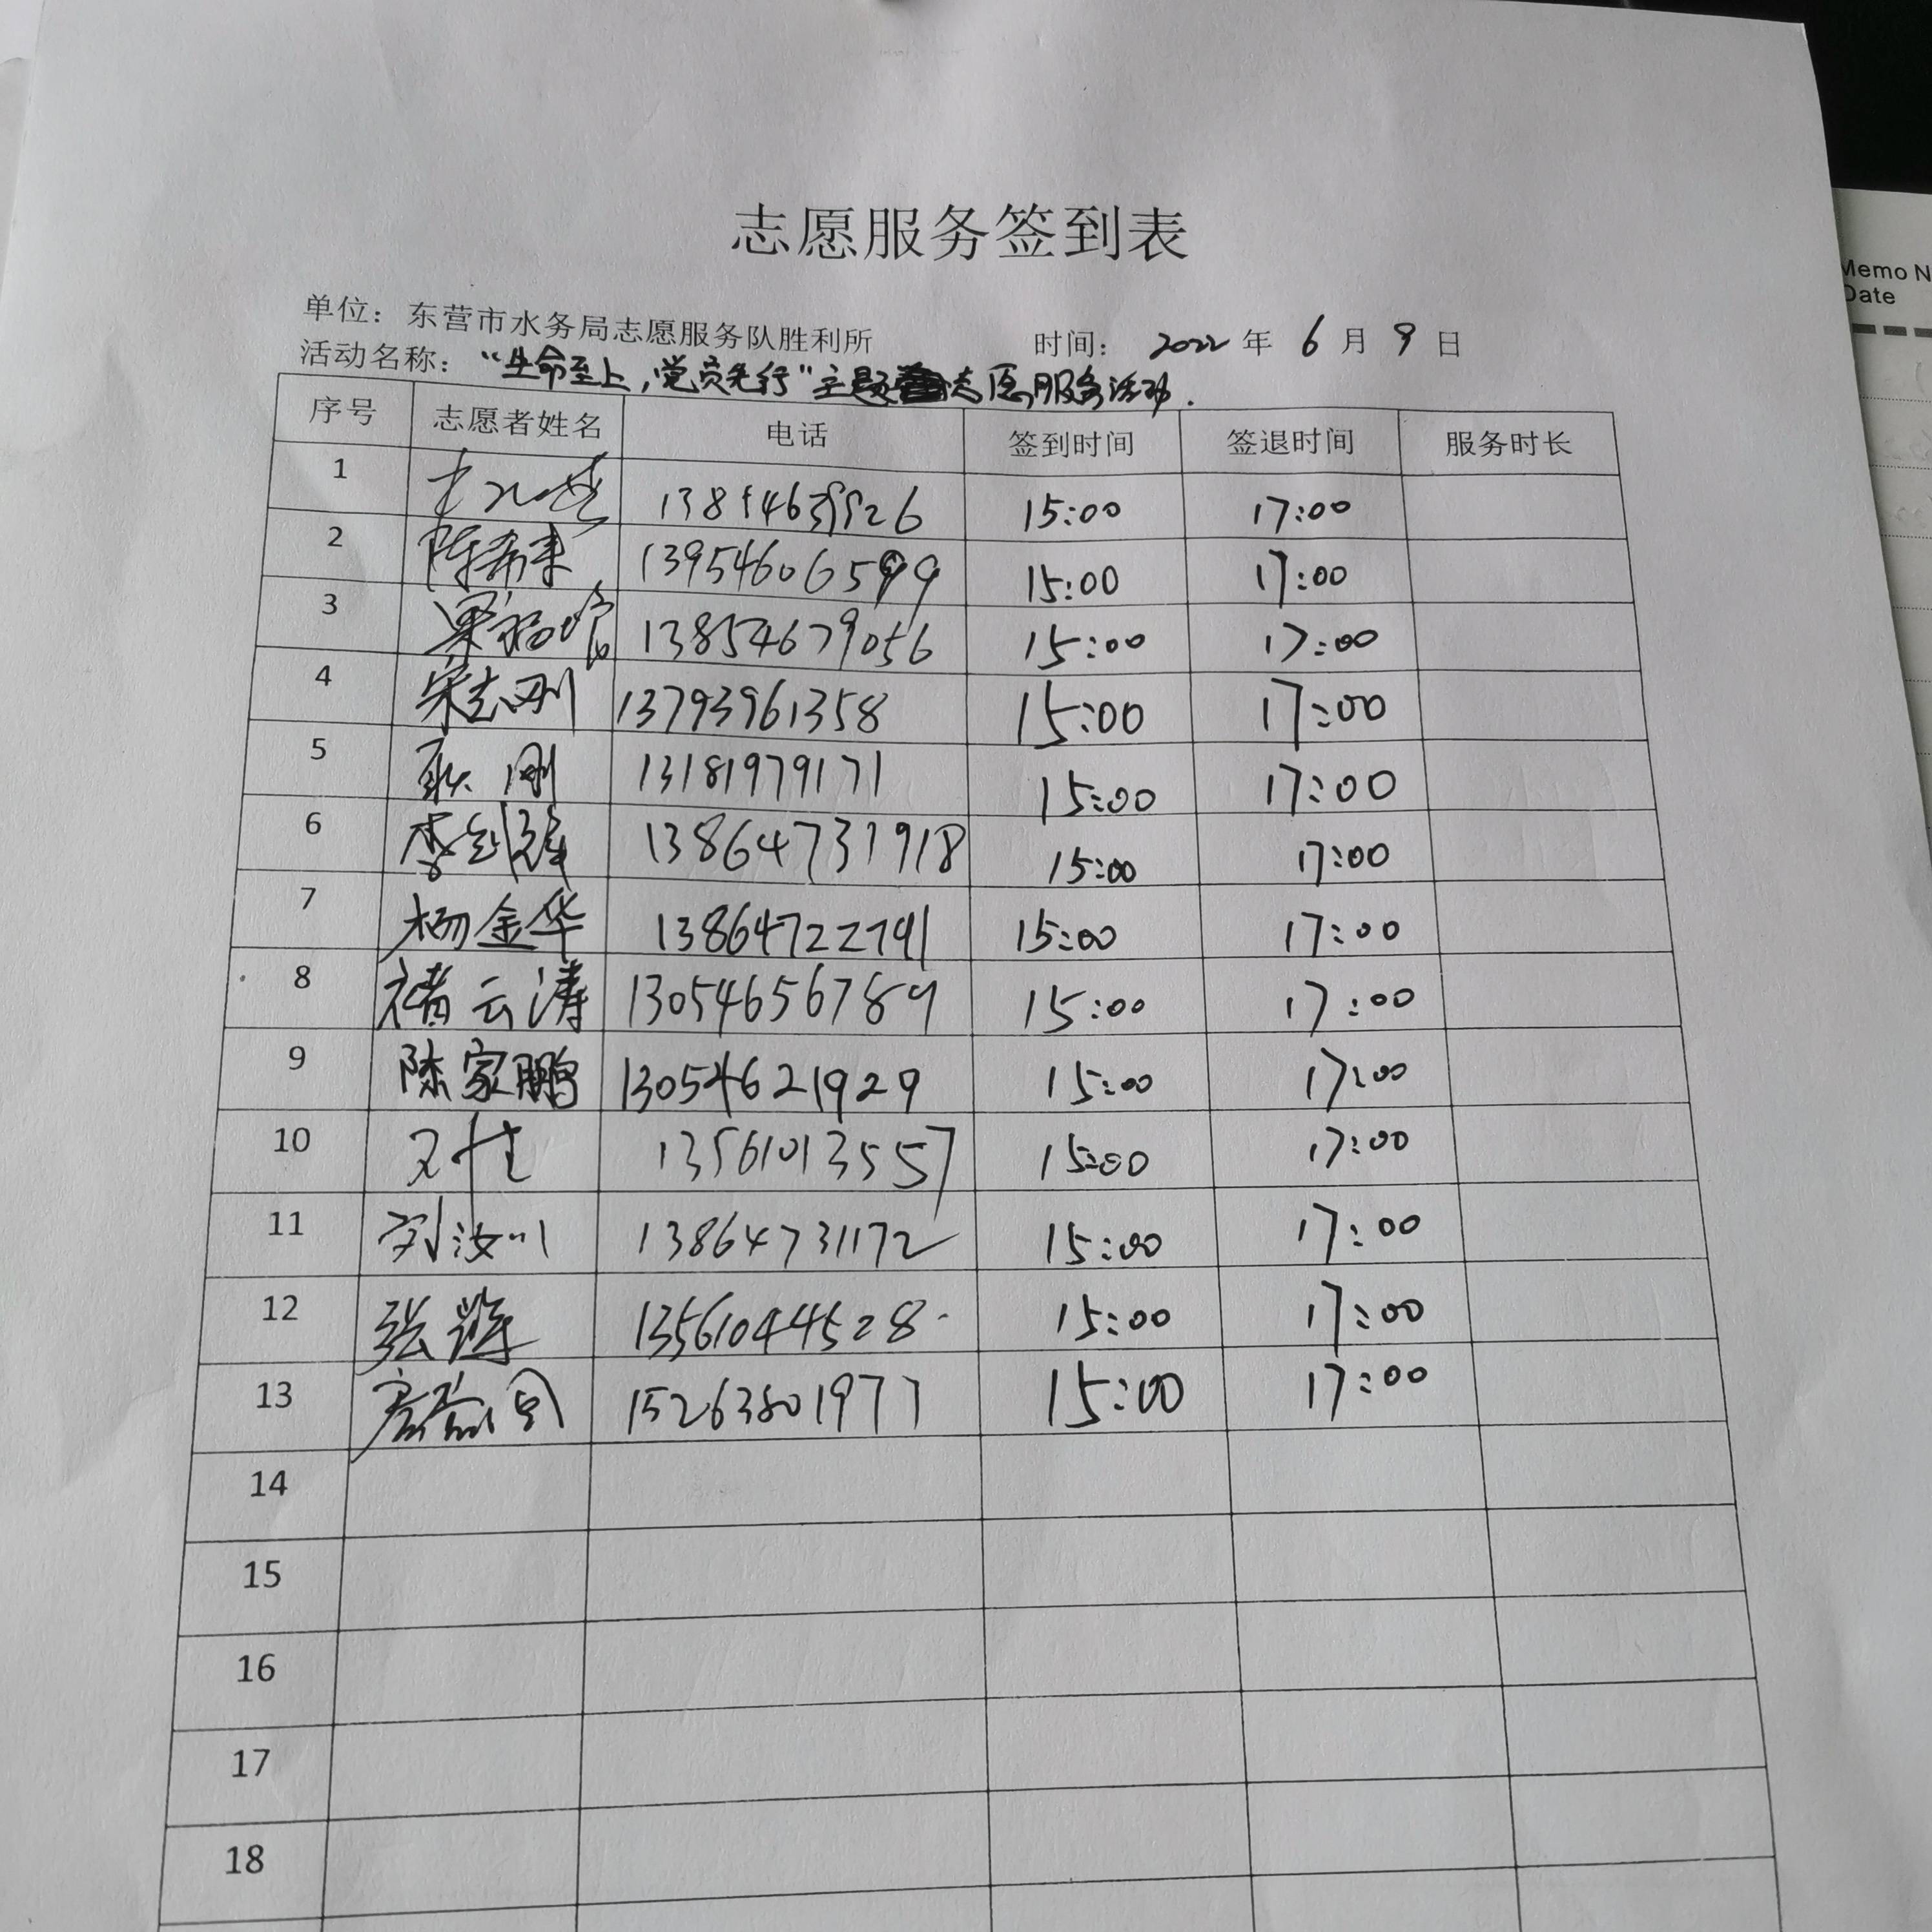 志愿服务签到表
单位：东营市水务局志愿服务队胜利所 时间：2022年6月9日
活动名称：“生命至上，党员先行”主题志愿服务活动.
序号 志愿者姓名 电话 签到时间 签退时间 服务时长
1 15:00 17:00
2 陈希来 13954606599 15:00 17:00
3 13854679056 15:00 17:00
4 宋志刚 13793961358 15:00 17:00
5 耿刚 13181979171 15:00 17:00
6 13864731918 15:00 17:00
7 杨金华 13864722791 15:00 17:00
8 褚云涛 13054656789 15:00 17:00
9 陈家鹏 13054621929 15:00 17:00
10 13561013557 15:00 17:00
11 刘汝川 13864731172 15:00 17:00
12 张 13561044528 15:00 17:00
13 15263801977 15:00 17:00
14
15
16
17
18
Memo N
Date